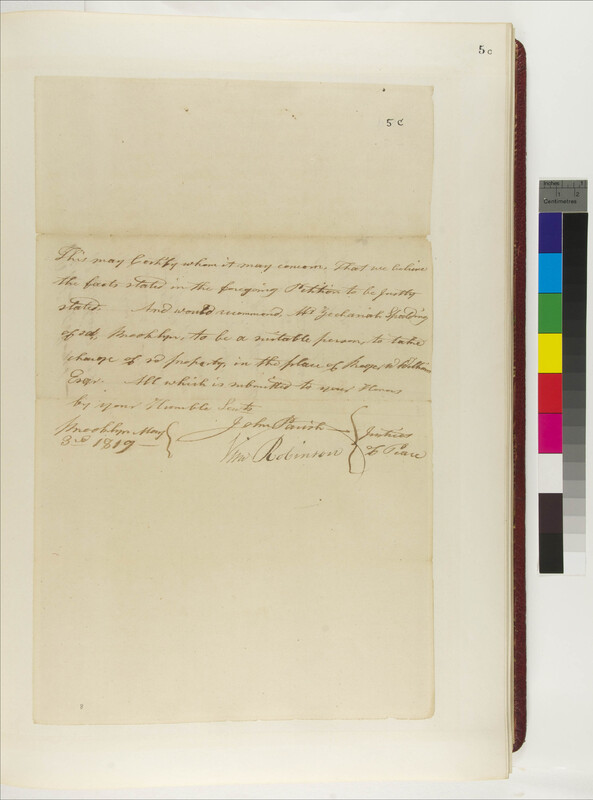 5 c
5 C
This may Certify whom it may concern, That we believe
the facts stated in the foregoing Petition to be justly
stated. And would recommend Mr Zechariah Spalding
of sd Brooklyn, to be a suitable person, to take
charge of sd property, in the place of
Esqr. All which is submitted to your Honors
by your Humble Servts
Brooklyn May
3rd 1819
John Parish
Wm Robinson
Justices
of Peace
Inches 1 2
Centimetres